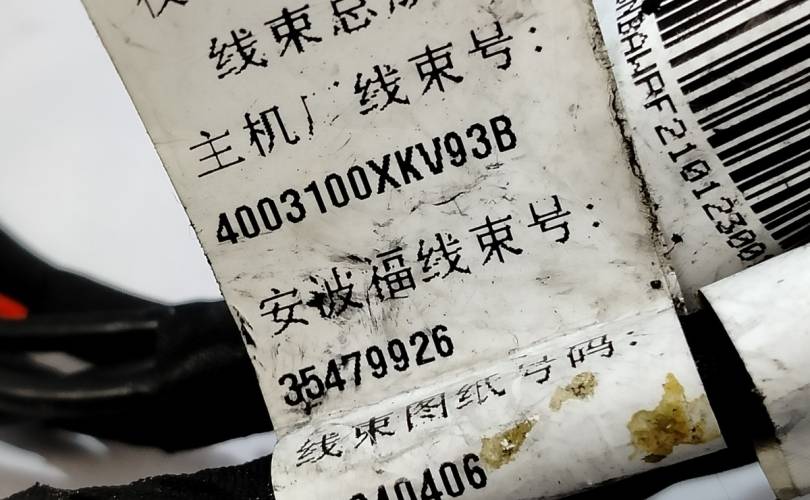 线束总成
主机厂线束号：
4003100XKV93B
安波福线束号：
35479926
线束图纸号码：
040406
BAWAF21012300